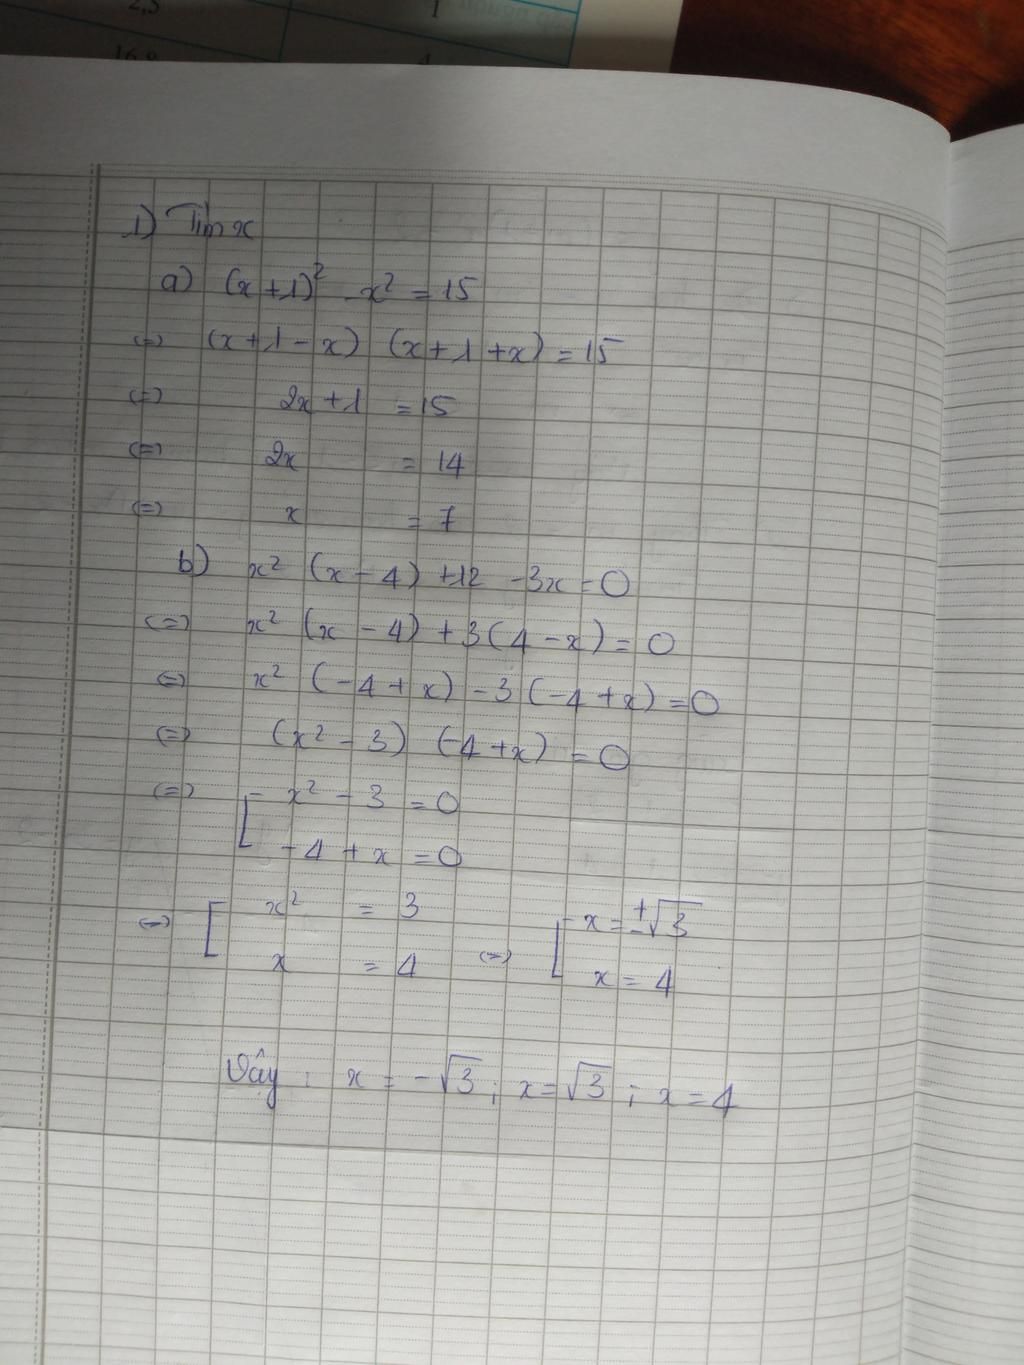 2,5 1
16,8 4
1) Tìm x
a) (x+1)² - x² = 15
(=) (x+1-x) (x+1+x) = 15
(=) 2x+1 = 15
(=) 2x = 14
(=) x = 7
b) x² (x-4) +12 -3x = 0
(=) x² (x-4) + 3(4-x) = 0
(=) x² (-4+x) - 3(-4+x) = 0
(=) (x²-3) (-4+x) = 0
(=) [ x² - 3 = 0
-4 + x = 0
(=) [ x² = 3 (=) [ x = ±√3
x = 4 x = 4
Vậy : x = -√3 ; x = √3 ; x = 4